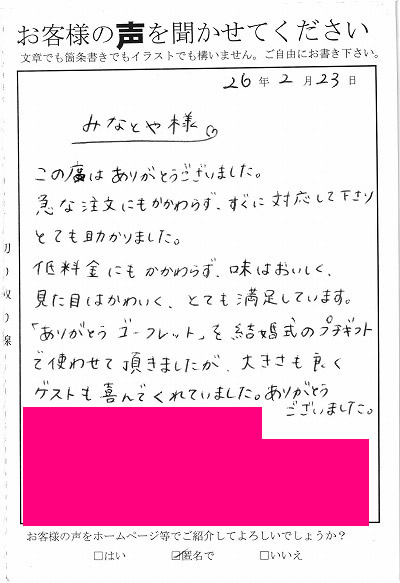 お客様の声を聞かせてください
文章でも箇条書きでもイラストでも構いません。ご自由にお書き下さい。
26年2月23日
みなとや様
この度はありがとうございました。
急な注文にもかかわらず、すぐに対応して下さり
とても助かりました。
低料金にもかかわらず、味はおいしく、
見た目はかわいく、とても満足しています。
「ありがとうゴーフレット」を結婚式のプチギフト
で使わせて頂きましたが、大きさも良く
ゲストも喜んでくれていました。ありがとう
ございました。
切り取り線
お客様の声をホームページ等でご紹介してよろしいでしょうか？
□はい □匿名で □いいえ